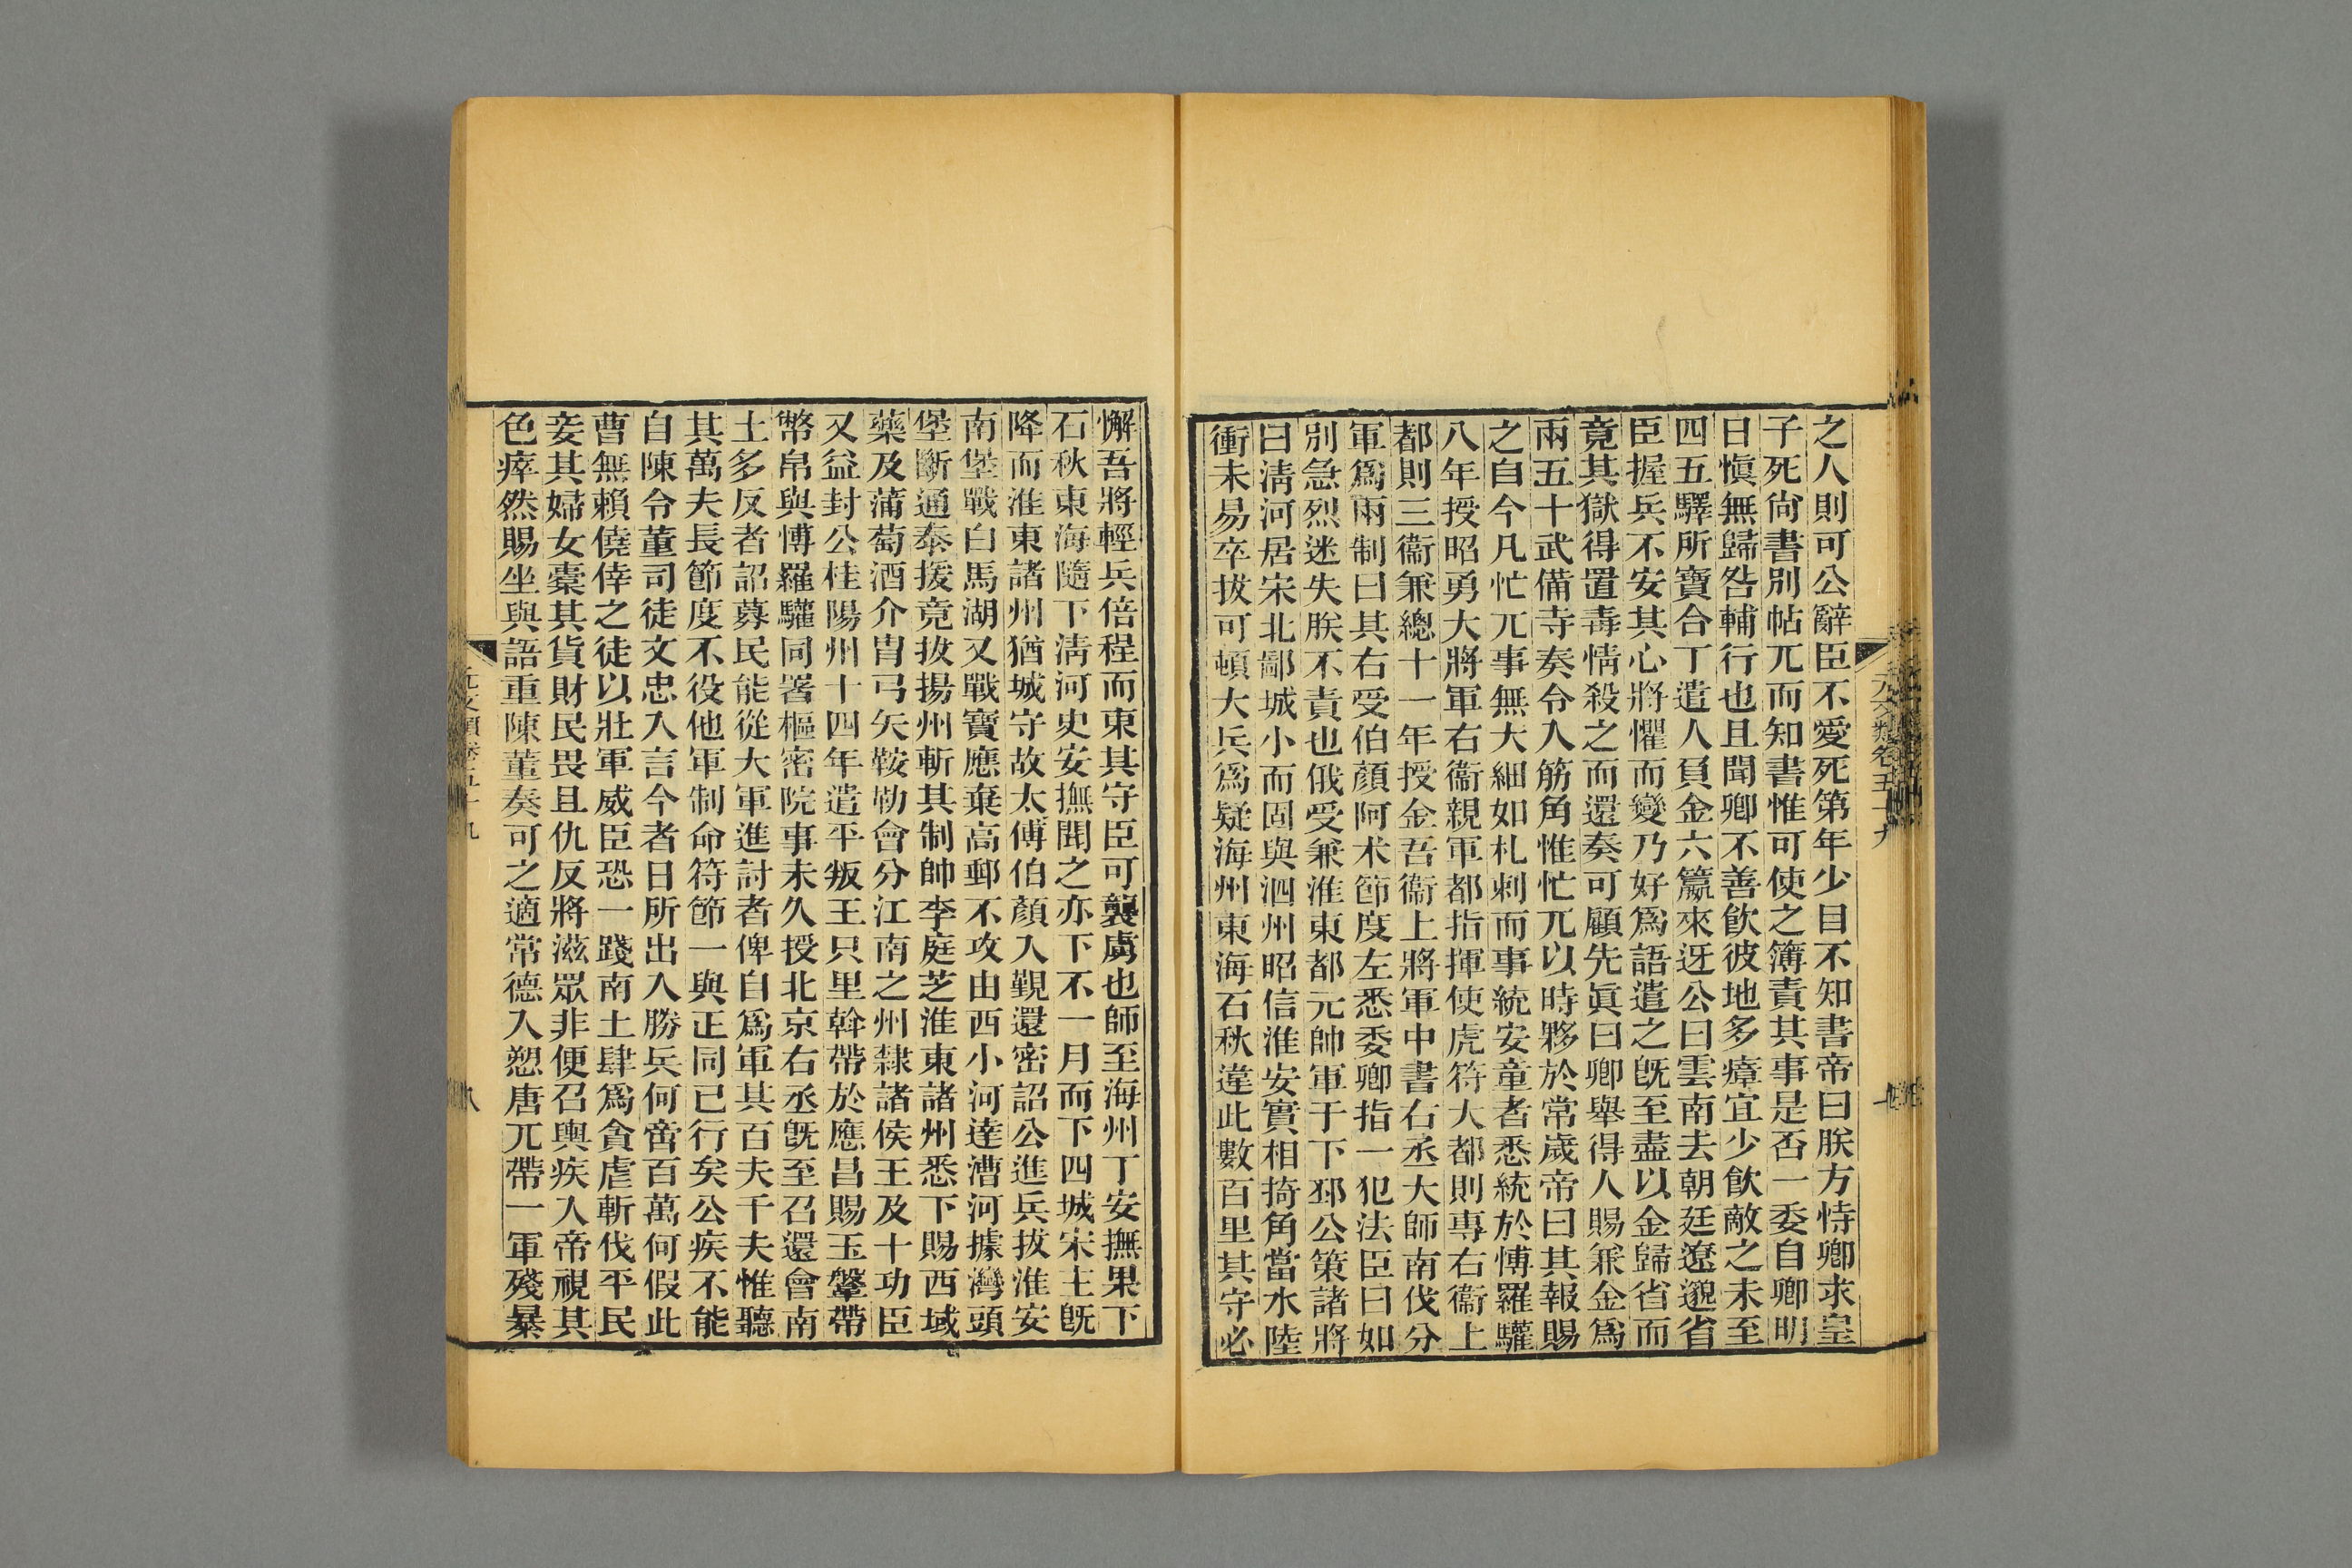 之人則可公辭臣不愛死第年少目不知書帝曰朕方恃卿求皇
子死尙書別帖兀而知書惟可使之簿責其事是否一委自卿明
日愼無歸咎輔行也且聞卿不善飮彼地多瘴宜少飮敵之未至
四五驛所寶合丁遣人負金六籯來迓公曰雲南去朝廷遼邈省
臣握兵不安其心將懼而變乃好爲語遣之旣至盡以金歸省而
竟其獄得置毒情殺之而還奏可顧先眞曰卿舉得人賜兼金爲
兩五十武備寺奏令入筋角惟忙兀以時夥於常歲帝曰其報賜
之自今凡忙兀事無大細如札剌而事統安童者悉統於博羅驩
八年授昭勇大將軍右衞親軍都指揮使虎符大都則專右衞上
都則三衞兼總十一年授金吾衞上將軍中書右丞大師南伐分
軍爲兩制曰其右受伯顏阿朮節度左悉委卿指一犯法臣曰如
別急烈迷失朕不責也俄受兼淮東都元帥軍于下邳公策諸將
曰淸河居宋北鄙城小而固與泗州昭信淮安實相掎角當水陸
衝未易卒拔可頓大兵爲疑海州東海石秋違此數百里其守必
元文類卷五十九
懈吾將輕兵倍程而東其守臣可襲虜也師至海州丁安撫果下
石秋東海隨下淸河史安撫聞之亦下不一月而下四城宋主旣
降而淮東諸州猶城守故太傅伯顏入覲還密詔公進兵拔淮安
南堡戰白馬湖又戰寶應棄高郵不攻由西小河達漕河據灣頭
堡斷通泰援竟拔揚州斬其制帥李庭芝淮東諸州悉下賜西域
藥及蒲萄酒介冑弓矢鞍勒會分江南之州隸諸侯王及十功臣
又益封公桂陽州十四年遣平叛王只里斡帶於應昌賜玉鞶帶
幣帛與博羅驩同署樞密院事未久授北京右丞旣至召還會南
土多反者詔募民能從大軍進討者俾自爲軍其百夫千夫惟聽
其萬夫長節度不役他軍制命符節一與正同已行矣公疾不能
自陳令董司徒文忠入言今者日所出入勝兵何啻百萬何假此
曹無賴僥倖之徒以壯軍威臣恐一踐南土肆爲貪虐斬伐平民
妾其婦女橐其貨財民畏且仇反將滋眾非便召輿疾入帝視其
色瘁然賜坐與語重陳董奏可之適常德入愬唐兀帶一軍殘暴
元文類卷五十九
八